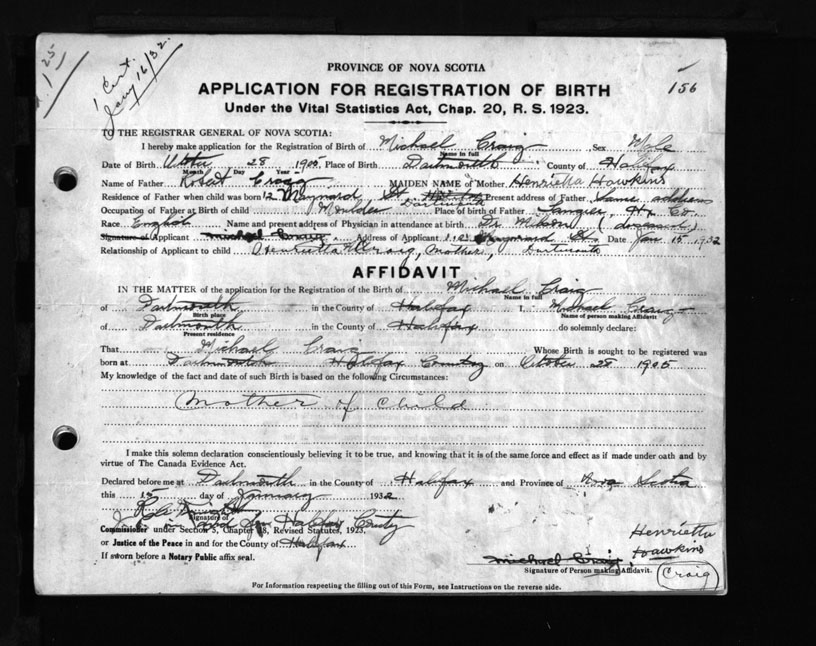 1 25
1 Cert.
Jany 16/32.
PROVINCE OF NOVA SCOTIA
APPLICATION FOR REGISTRATION OF BIRTH
156
Under the Vital Statistics Act, Chap. 20, R. S. 1923.
TO THE REGISTRAR GENERAL OF NOVA SCOTIA:
I hereby make application for the Registration of Birth of Michael Craig Sex Male
Name in full
Date of Birth October 28 1905 Place of Birth Dartmouth County of Halifax
Month Day Year
Name of Father Robert Craig MAIDEN NAME of Mother Henrietta Hawkins
Residence of Father when child was born 12 Maynard St. Dartmouth Present address of Father Same address
Occupation of Father at Birth of child Moulder Place of birth of Father Tangier, Hx Co.
Race English Name and present address of Physician in attendance at birth Dr. (deceased)
Signature of Applicant Michael Craig Address of Applicant Maynard St. Date Jan 15 1932
Relationship of Applicant to child Henrietta H Craig, Mother, Dartmouth
AFFIDAVIT
IN THE MATTER of the application for the Registration of the Birth of Michael Craig
Name in full
of Dartmouth in the County of Halifax I, Michael Craig
Birth place Name of person making Affidavit
of Dartmouth in the County of Halifax do solemnly declare:
Present residence
That Michael Craig Whose Birth is sought to be registered was
born at Dartmouth Halifax County on October 28 1905
My knowledge of the fact and date of such Birth is based on the following Circumstances:
Mother of Child
I make this solemn declaration conscientiously believing it to be true, and knowing that it is of the same force and effect as if made under oath and by
virtue of The Canada Evidence Act.
Declared before me at Dartmouth in the County of Halifax and Province of Nova Scotia
this 15 day of January 1932
Signature of
Halifax County
Commissioner under Section 5, Chapter 38, Revised Statutes, 1923.
or Justice of the Peace in and for the County of Halifax
If sworn before a Notary Public affix seal.
Henrietta
Hawkins
Michael Craig
(Craig)
Signature of Person making Affidavit.
For Information respecting the filling out of this Form, see Instructions on the reverse side.